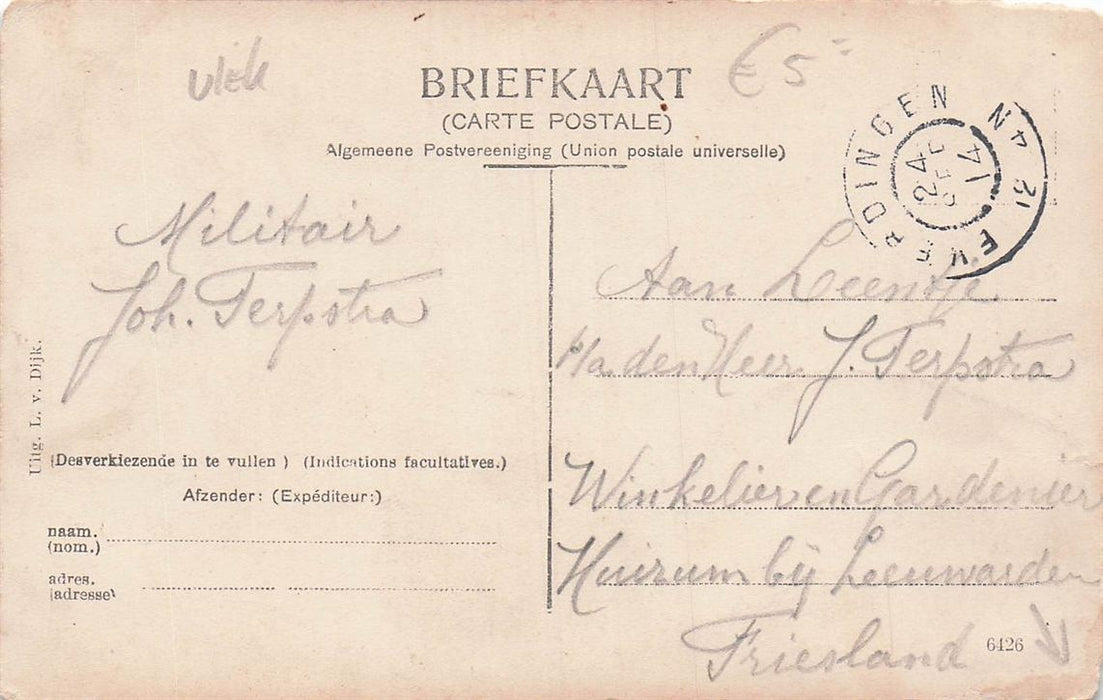 vlek
€ 5 =
BRIEFKAART
(CARTE POSTALE)
Algemeene Postvereeniging (Union postale universelle)
EVERDINGEN
24
14
12 4N
Militair
Joh. Terpstra
Aan Leentje
p/a den Heer J. Terpstra
Winkelier en Gardenier
Huizum bij Leeuwarden
Friesland
Uitg. L. v. Dijk.
(Desverkiezende in te vullen) (Indications facultatives.)
Afzender: (Expéditeur:)
naam.
(nom.)
adres.
(adresse)
6426